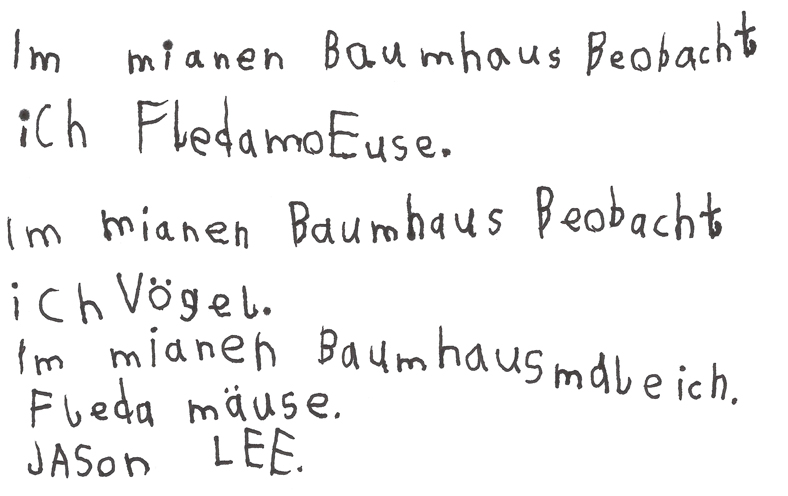 Im mianen Baumhaus Beobacht
ich FledamoEuse.
Im mianen Baumhaus Beobacht
ich Vögel.
Im mianen Baumhaus male ich.
Fleda mäuse.
JASon LEE.